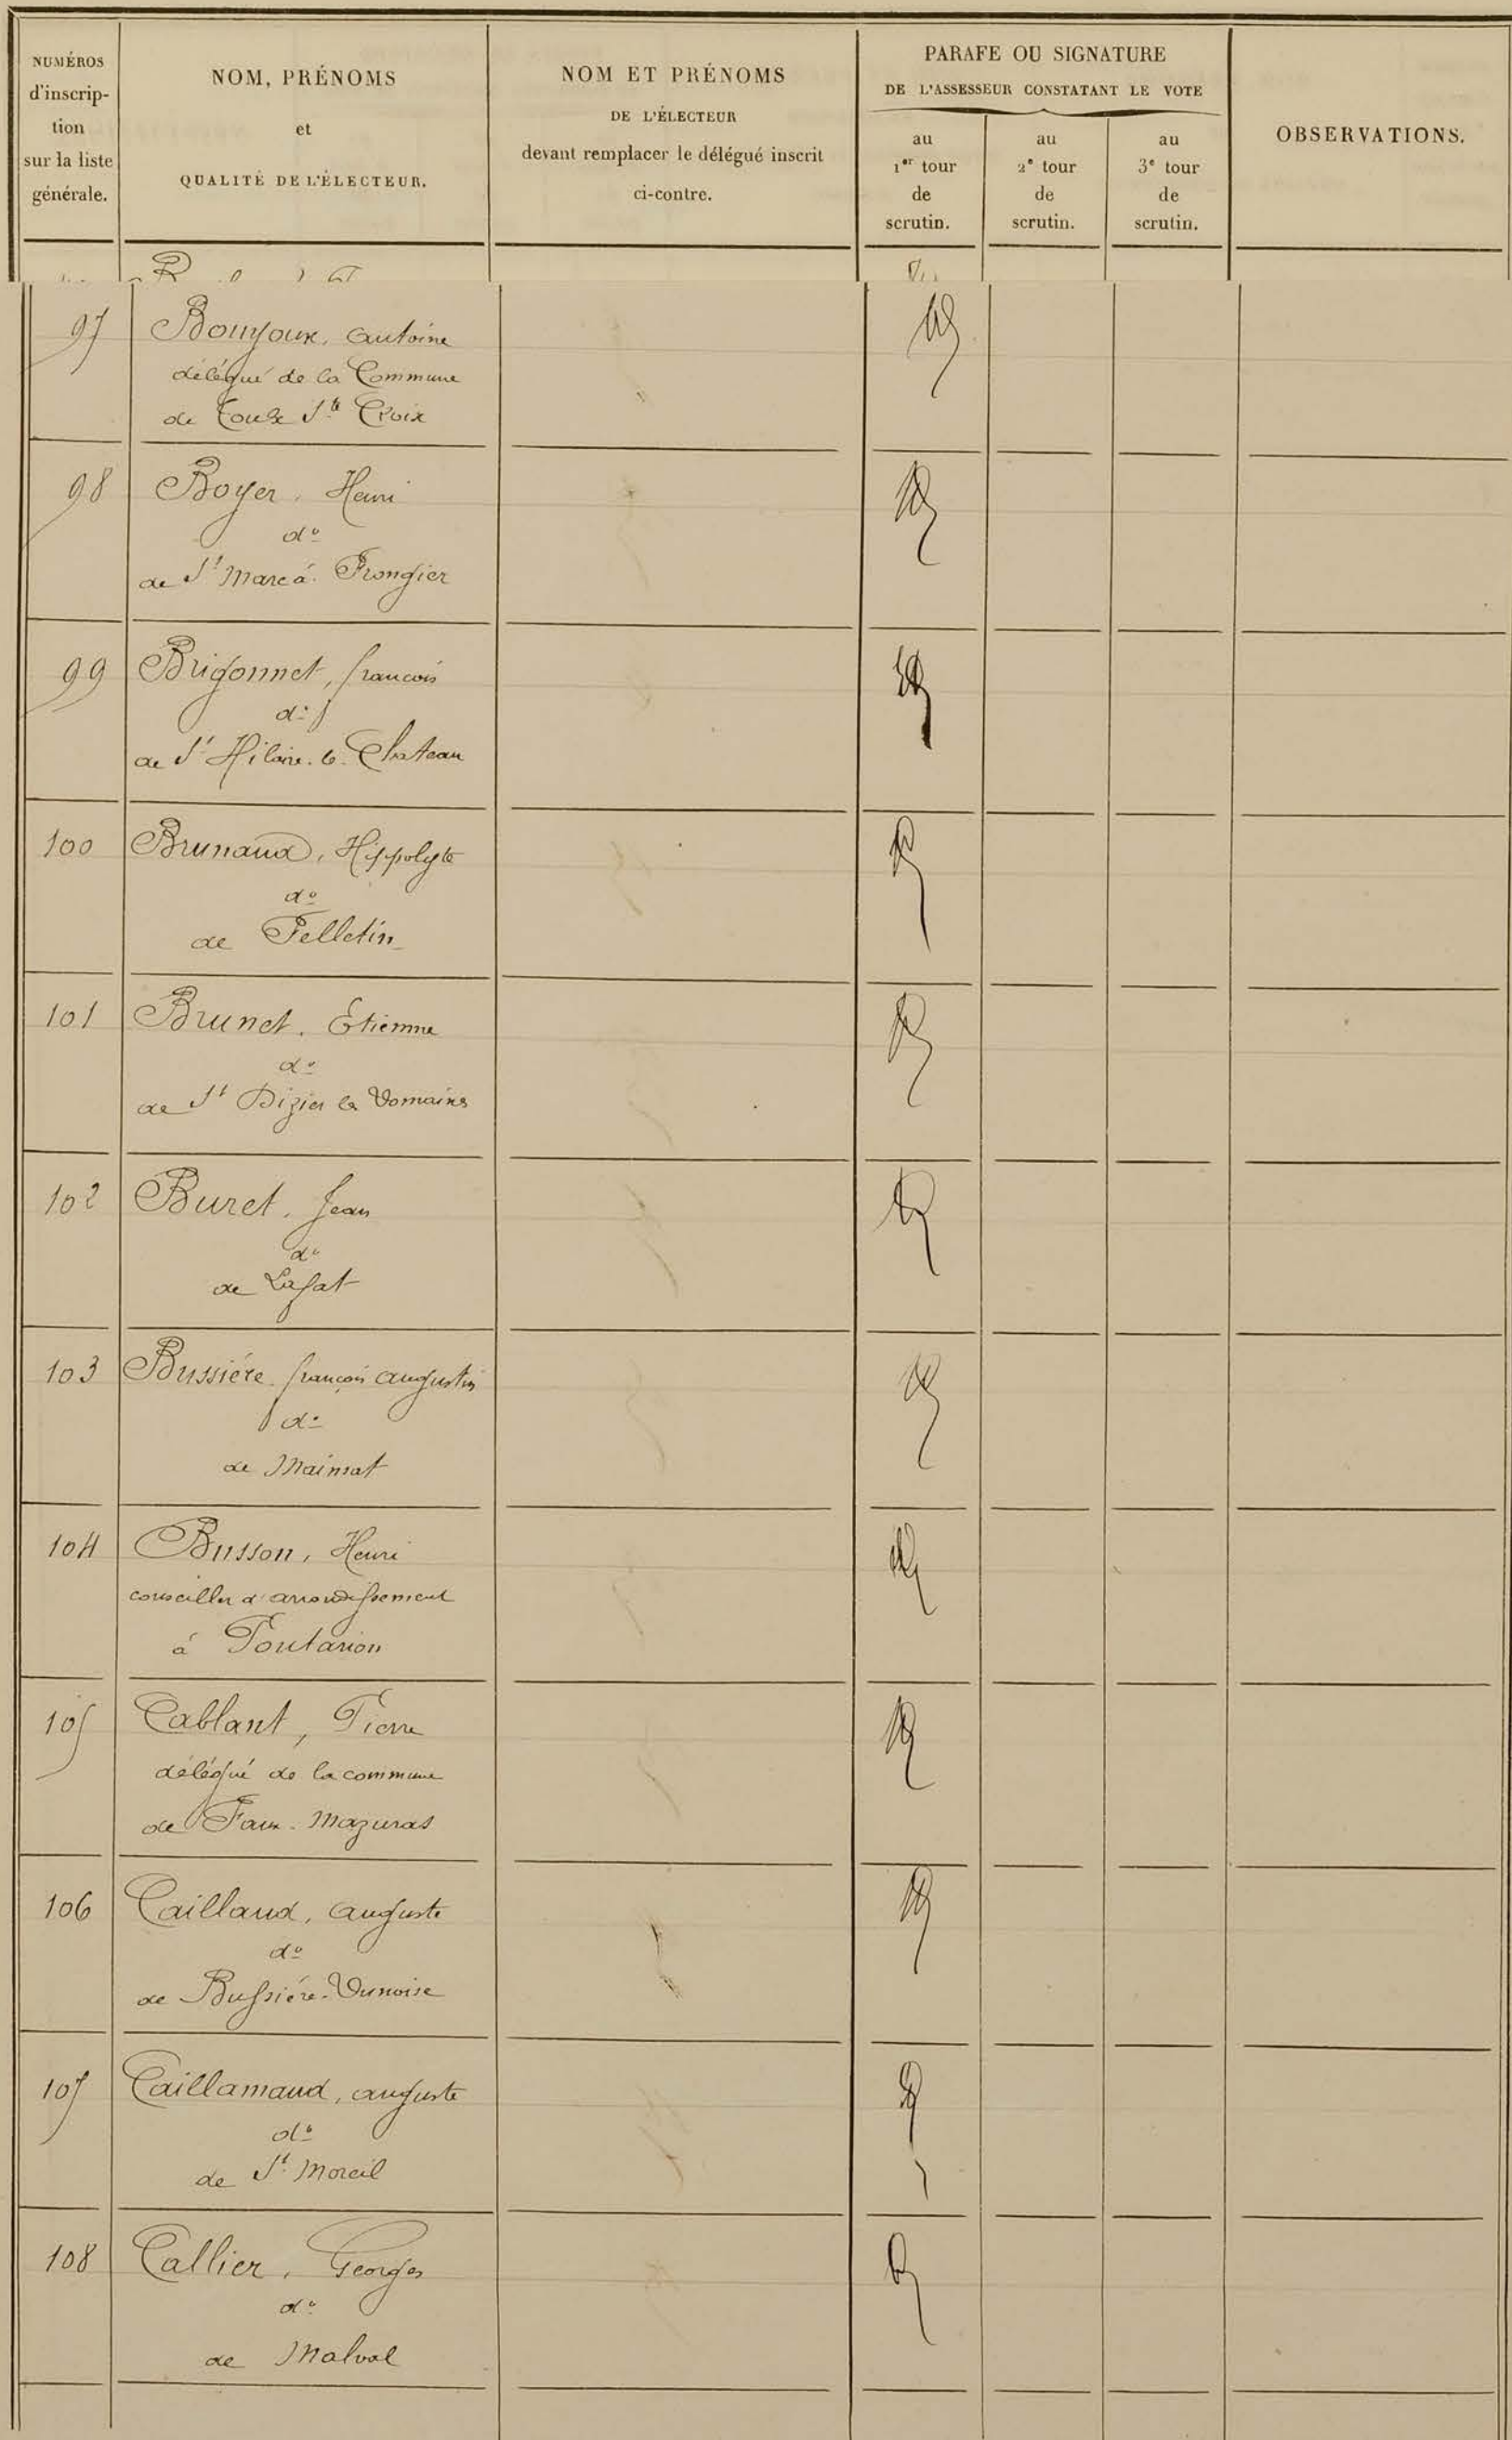 NUMÉROS
d'inscrip-
tion
sur la liste
générale.
NOM, PRÉNOMS
et
QUALITÉ DE L'ÉLECTEUR.
NOM ET PRÉNOMS
DE L'ÉLECTEUR
devant remplacer le délégué inscrit
ci-contre.
PARAFE OU SIGNATURE
DE L'ASSESSEUR CONSTATANT LE VOTE
au
1er tour
de
scrutin.
au
2e tour
de
scrutin.
au
3e tour
de
scrutin.
OBSERVATIONS.
97 Boujoux, Antoine
délégué de la Commune
de Toulx Ste Croix
98 Boyer, Henri
do
de St Marc à Frongier
99 Brigonnet, françois
do
de St Hilaire-le-Chateau
100 Brunaud, Hippolyte
do
de Felletin
101 Brunet, Etienne
do
de St Dizier les Domaines
102 Buret, Jean
do
de Lafat
103 Bussière françois augustin
do
de Mainsat
104 Busson, Henri
conseiller d'arrondissement
à Pontarion
105 Cablant, Pierre
délégué de la commune
de Faux-Mazuras
106 Caillaud, auguste
do
de Bussière-Dunoise
107 Caillamaud, auguste
do
de St Moreil
108 Callier, Georges
do
de Malval